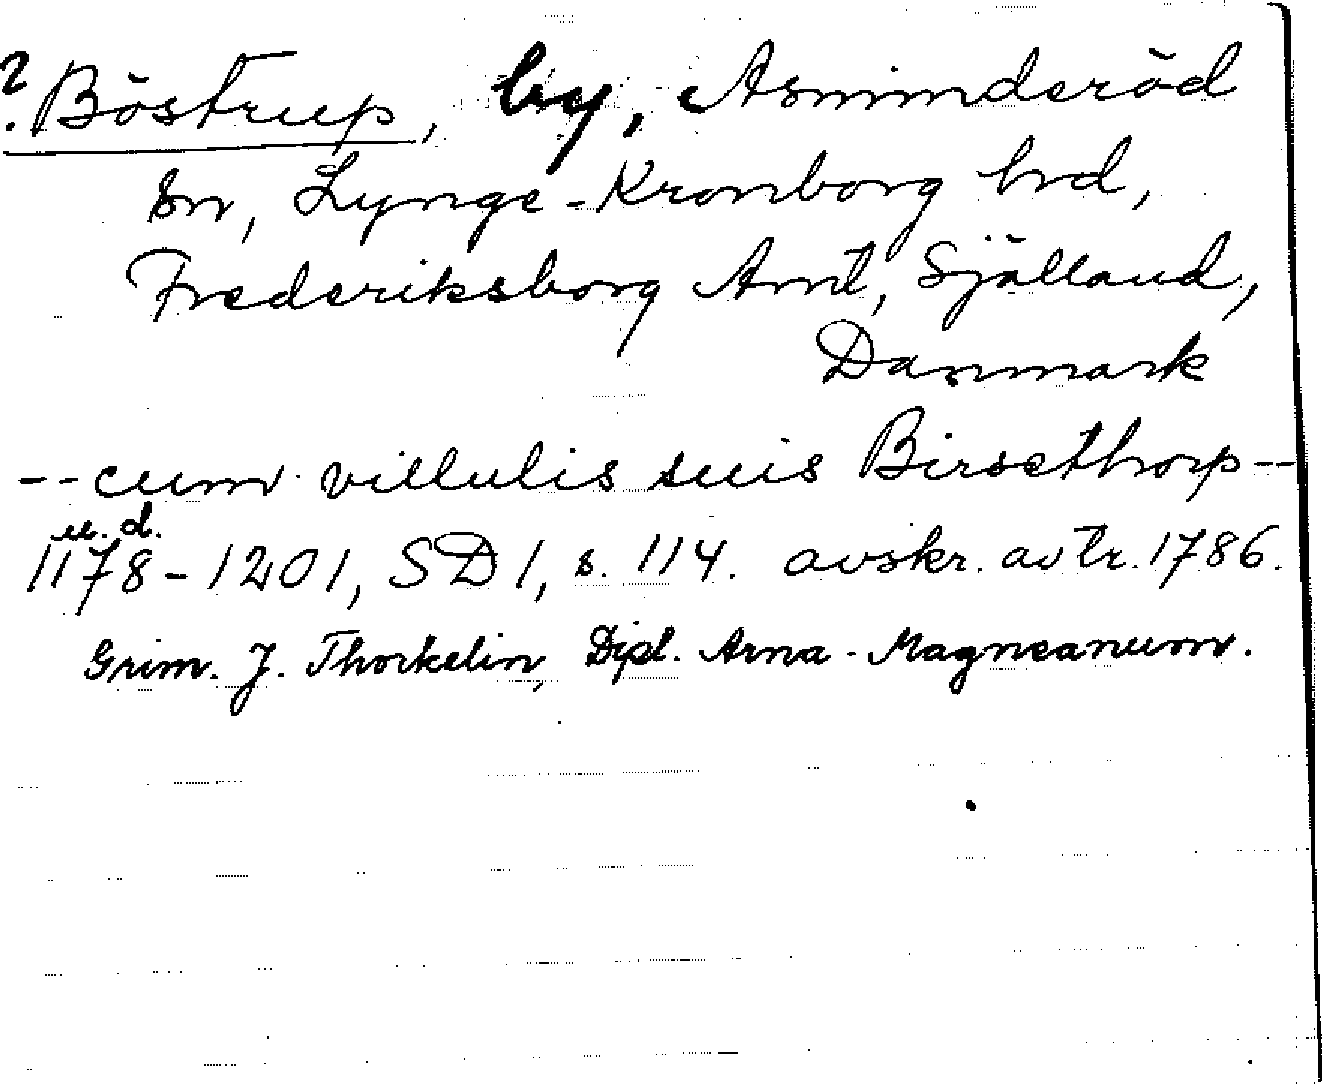 ? Böstrup, by, Asminderöd
sn, Lynge-Kronborg hrd,
Frederiksborg Amt, Själland,
Danmark
-- cum villulis suis Birsethorp --
u.d.
1178-1201, SD 1, s. 114. avskr. av tr. 1786.
Grim. J. Thorkelin, Dipl. Arna-Magneanum.